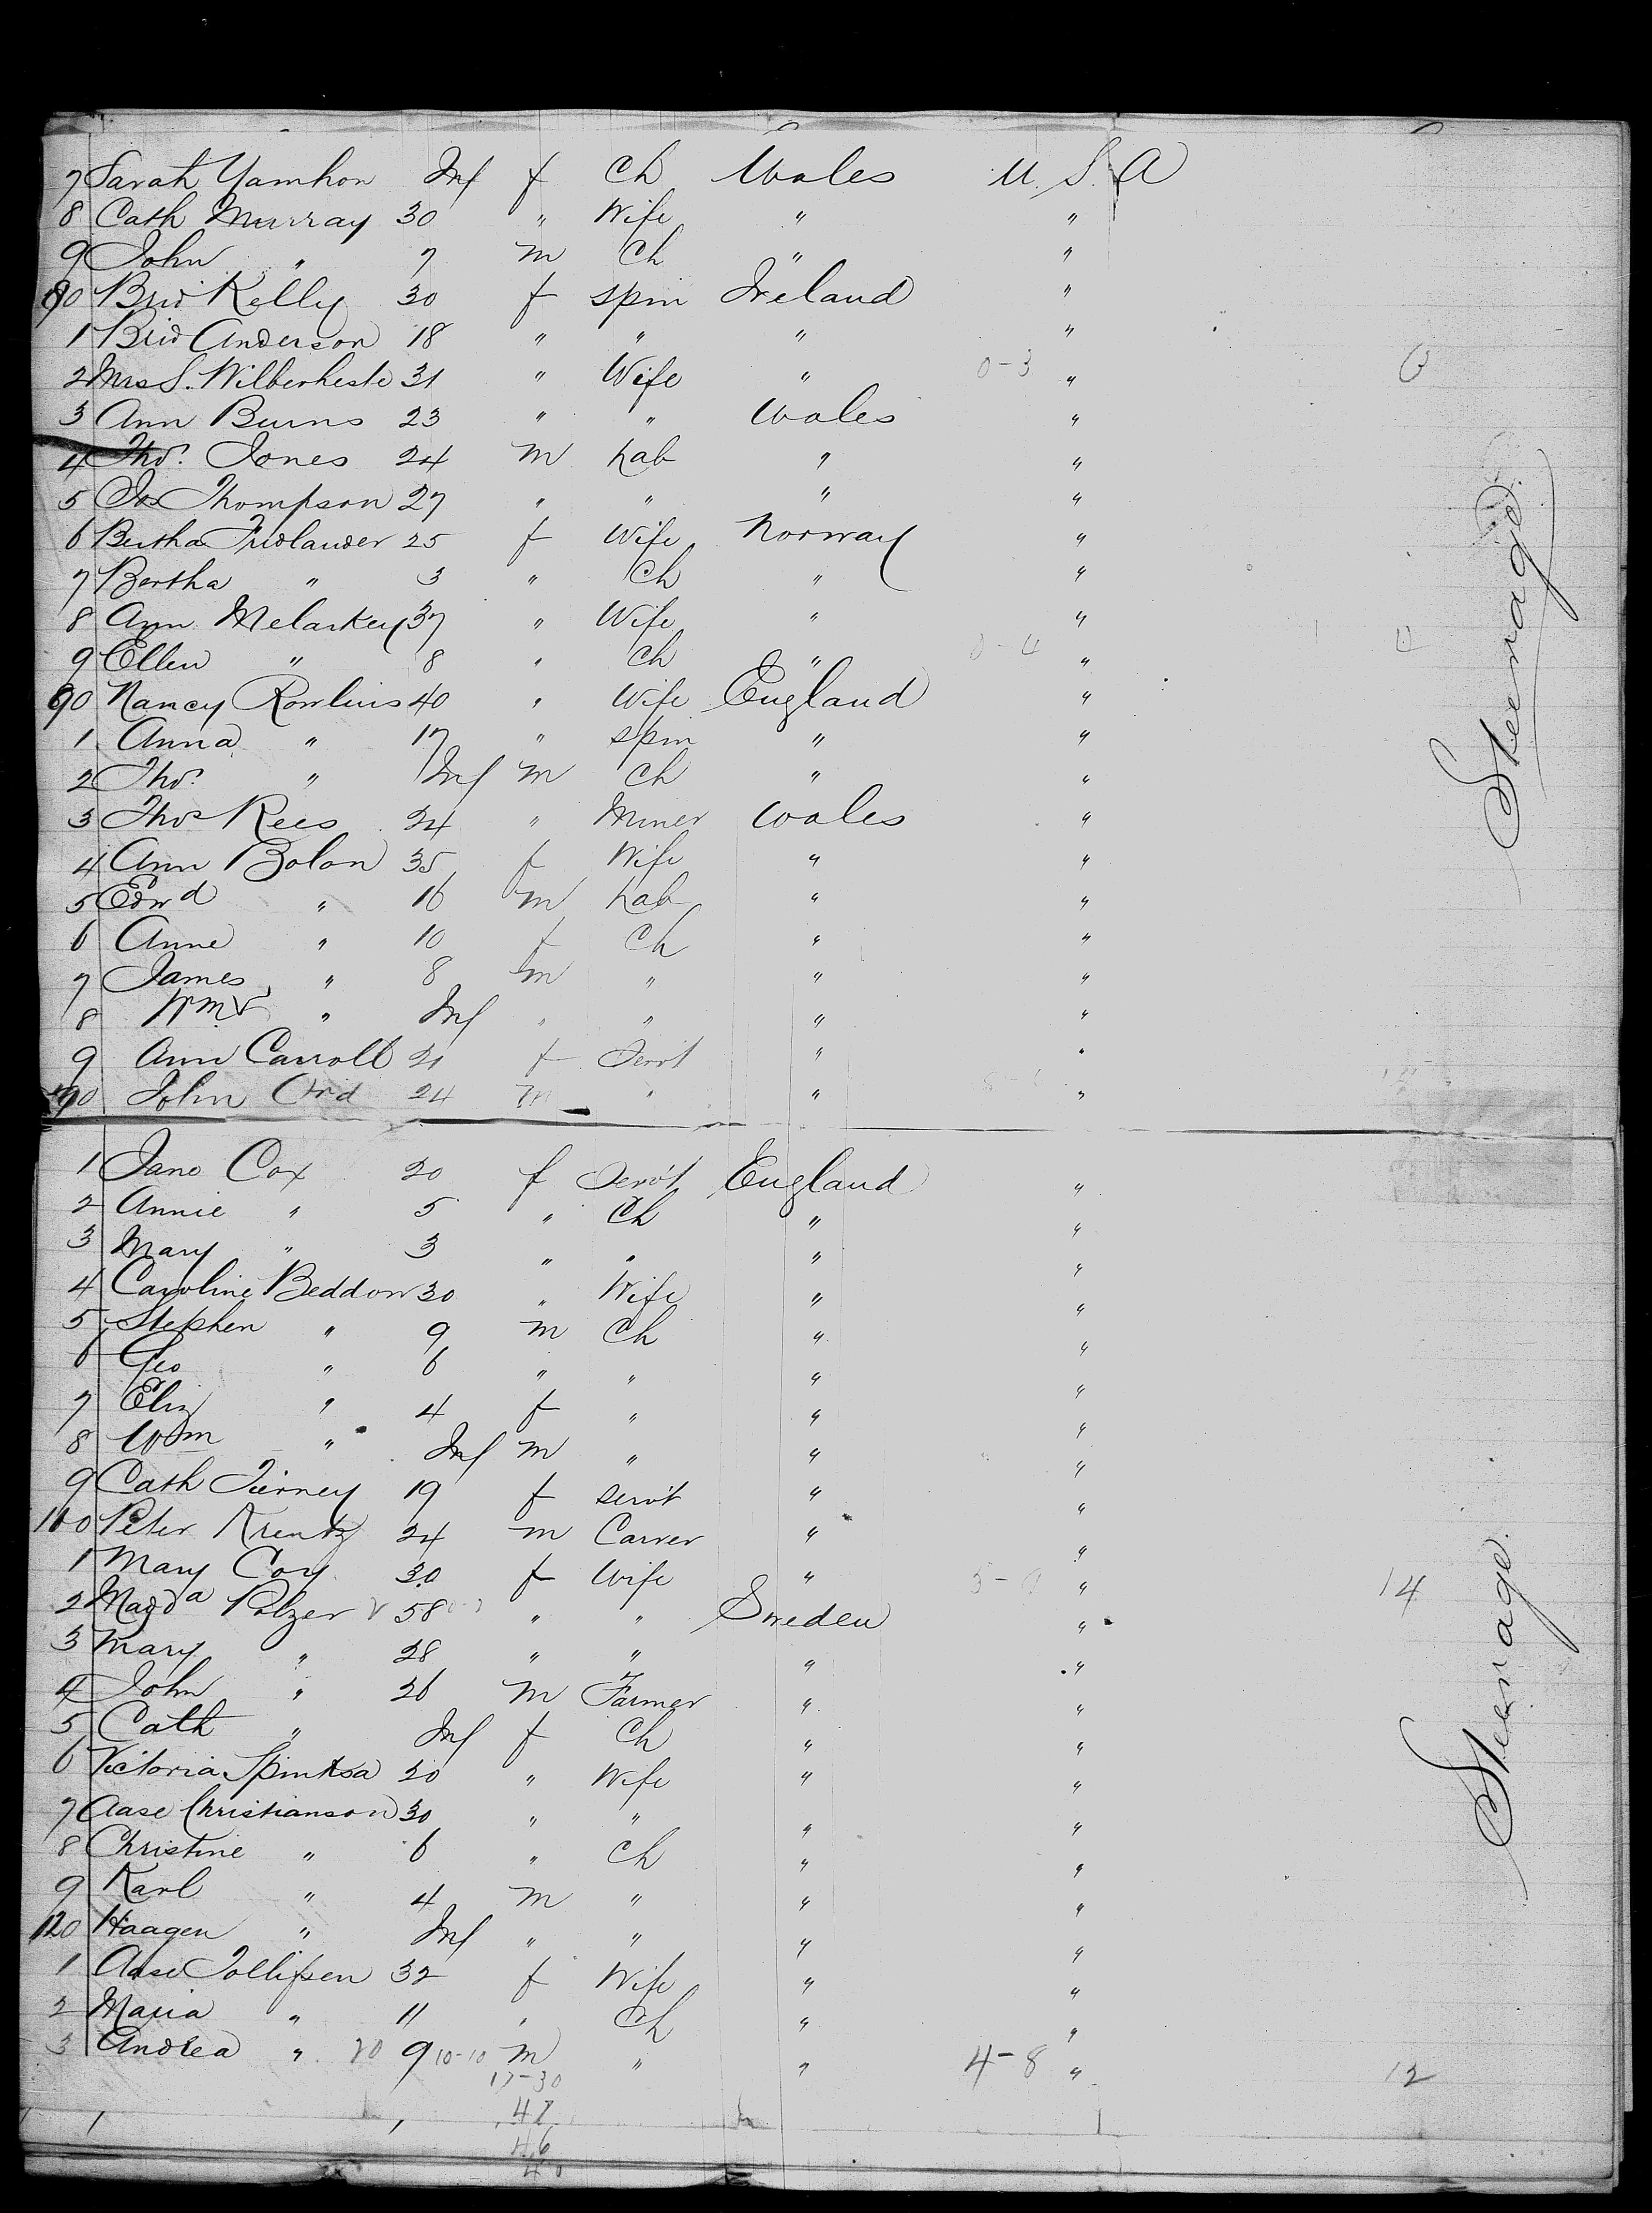 7 Sarah Yamhon Inf f Ch Wales U. S. A
8 Cath Murray 30 " Wife " "
9 John " 7 m Ch " "
80 Brid Kelly 30 f spin Ireland "
1 Brid Anderson 18 " " " "
2 Mrs S. Wilberheste 31 " Wife " 0-3 "
3 Ann Burns 23 " " Wales "
4 Thos. Jones 24 m Lab " "
5 Jas Thompson 27 " " " "
6 Bertha Fridlander 25 f Wife Norway "
7 Bertha " 3 " Ch " "
8 Ann Melarkey 37 " Wife " "
9 Ellen " 8 " Ch " 0-4 " 4
90 Nancy Rowlins 40 " Wife England "
1 Anna " 17 " spin " "
2 Thos. " Inf m Ch " "
3 Thos Rees 24 " Miner Wales "
4 Ann Bolon 35 f Wife " "
5 Edwd " 16 m Lab " "
6 Anne " 10 f Ch " "
7 James " 8 m " " "
8 Wm " Inf " " " "
9 Ann Carroll 21 f Servt " "
John Ord 24 m " " "
Steerage
1 Jane Cox 20 f Servt England "
2 Annie " 5 " Ch " "
3 Mary " 3 " " " "
4 Caroline Beddow 30 " Wife " "
5 Stephen " 9 m Ch " "
6 Geo " 6 " " " "
7 Eliz " 4 f " " "
8 Wm " Inf m " " "
9 Cath Tierney 19 f servt " "
110 Peter Krentz 24 m Carver " "
1 Mary Cory 30 f Wife " " 14
2 Magda Polzer 58 " " Sweden "
3 Mary " 28 " " " "
4 John " 26 m Farmer " "
5 Cath " Inf f Ch " "
6 Victoria Spinksa 20 " Wife " "
7 Aase Christianson 30 " " " "
8 Christine " 6 " Ch " "
9 Karl " 4 m " " "
120 Haagen " Inf " " " "
1 Aase Tollifsen 32 f Wife " "
2 Maria " 11 " Ch " "
3 Andrea " 20 9 10-10 m " " 4-8 " 12
17-30
47
46
Steerage